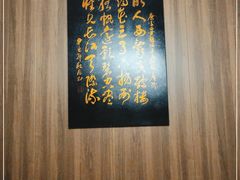 故人西辭黃鶴樓
煙花三月下揚州
孤帆遠影碧空盡
惟見長江天際流